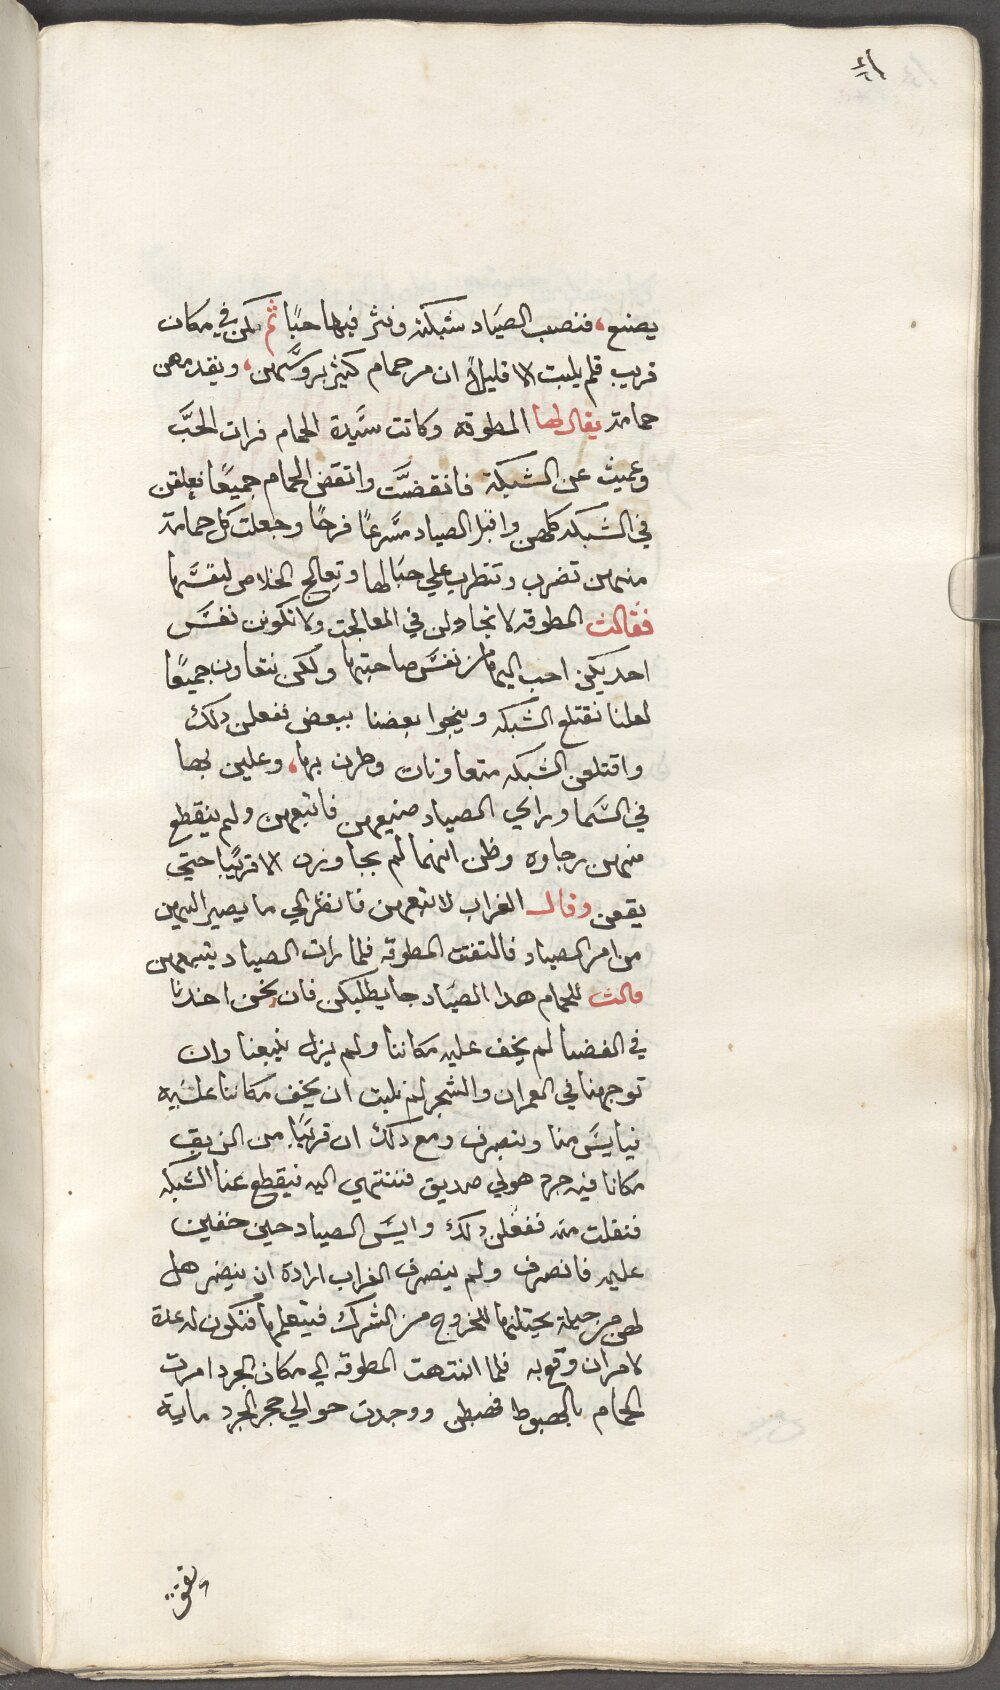 يصنع، فنصب الصيَاد شبكته ونثر فيها حبًا ثم كمن في مكان
قريب فلم يلبث الا قليلاً ان مر حمام كثير بروسَّهن، ويقدمهن
حمامة يقال لها المطوقه وكانت سيَّدة الحمام فرات الحَبَّ
وعميت عن الشبكة فانقضَّت وانقض الحمام جميعًا فعلقن
في الشبكه كلهن واقبل الصياد مسَرعًا فرحًا وجعلت كل حمامة
منهن تضرب وتنطرب علي حبَالها وتعالج الخلاص لنفسَها
فقالت المطوقه لا تجادلن في المعالجة ولا تكونن نفسَ
احديكن احب اليها من نفسَ صاحبتها ولكن نتعاون جميعًا
لعلنا نقتلع الشبكه وينجوا بعضنا ببعض ففعلن دلك
واقتلعن الشبكه متعاونات وطرن بها، وعلين بها
في السَما وراي الصياد صنيعهن فاتبعهن ولم ينقطع
منهن رجاوه وظن انهما لم يجاوزن الا قريبًا حتي
يقعن وقال الغراب لاتبعهن فانظر الي ما يصير اليهن
من امر الصياد فالتفتت المطوقه فلما رات الصياد يتبعهن
قالت للحمام هدا الصيَاد جا يطلبكن فان نحن اخدنا
في الفضا لم يخف عليه مكاننا ولم يزل يتبعنا وان
توجهنا في العمران والشجر لم نلبت ان يخف مكاننا علَيه
فيايسَ منا وينصرف ومع دلك ان قريبًا من الريف
مكانا فيه جرد هو لي صديق فننتهي اليه فيقطع عنا الشبكه
فنفلت منه ففعلن دلك وايسَ الصياد حين خفين
عليه فانصرف ولم ينصرف الغراب ارادة ان ينضر هل
لهن من حيلة يحيتلنها للخروج من الشرك فيتعلمها فتكون له عدة
لامر ان وقع به فلما انتهت المطوقه الي مكان الجرد امرت
الحمام بالهبوط فهبطن ووجدت حوالي جحر الجرد ماية
ثقب